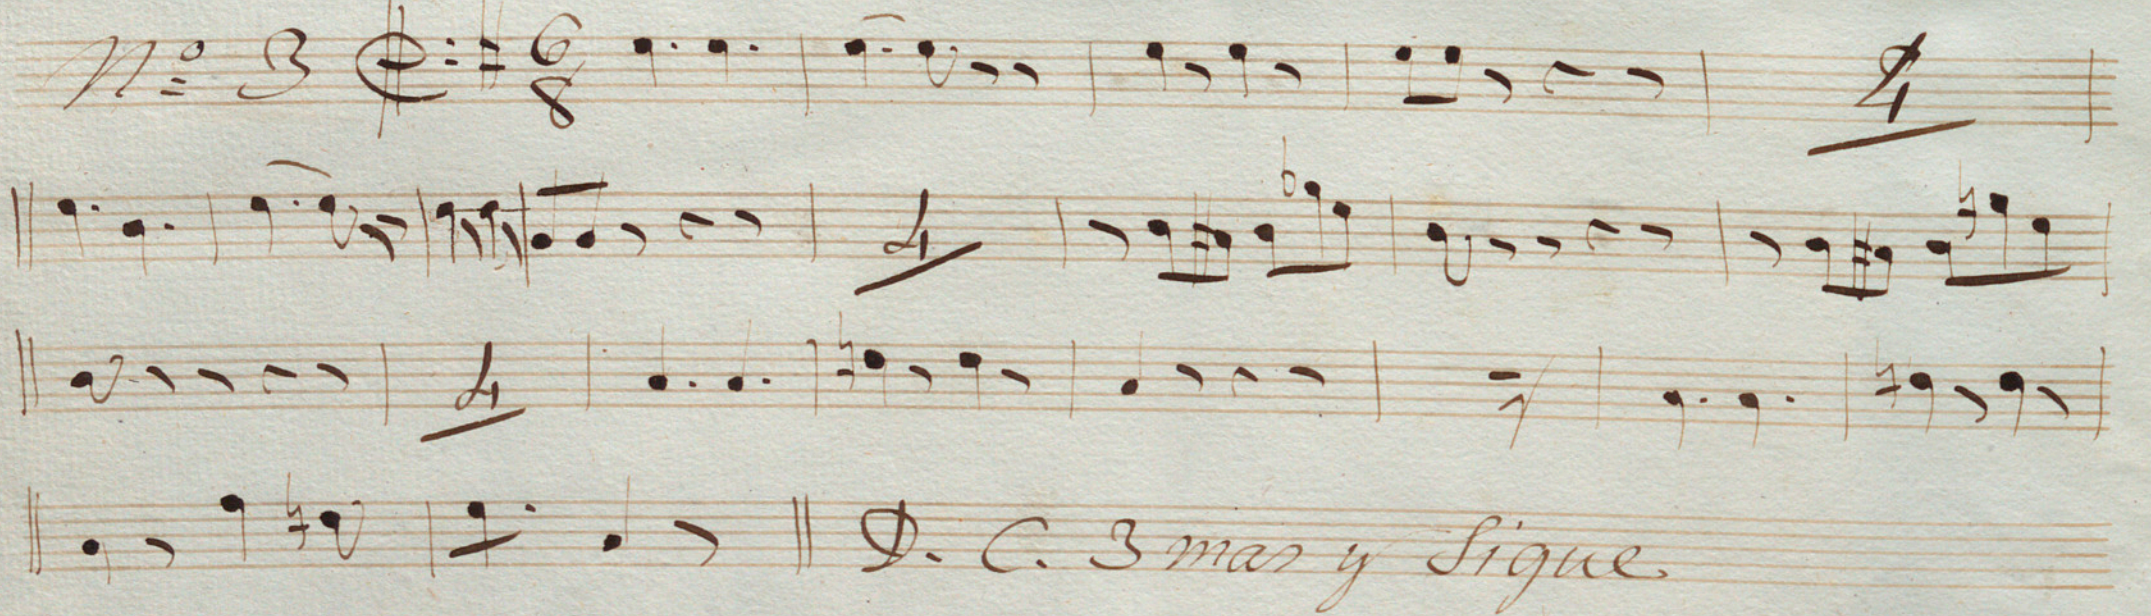 Nº 3 6 8 4
4
4
D. C. 3 mas y Sigue